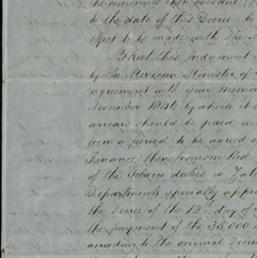 to the date of this Decree
effect to be made with the
That this judgment
by the Mexican Minister of
agreement with your
November 1846 by which it
arrears should be paid
from a period to be agreed
Finance then transmitted
of the Tobacco duties in
Department specially
the Decree of the 19th day of
the payment of the 35,000
according to the original Decree